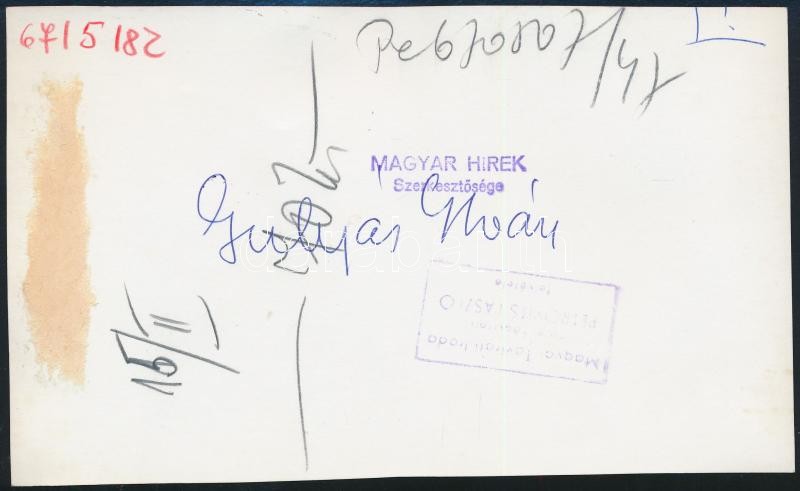 67/5/82
Pe670807/47
MAGYAR HIREK
Szerkesztősége
Gulyás István
15/II
Magyar Távirati Iroda
PETROVITS LÁSZLÓ
felvétele